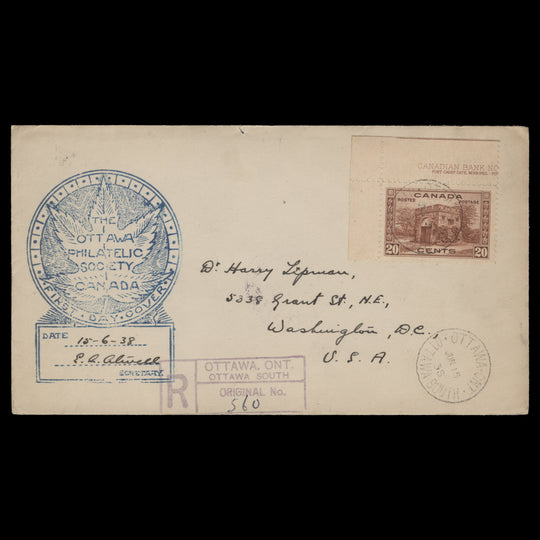 CANADIAN BANK NO
FORT GARRY GATE, WINNIPEG
CANADA
POSTES POSTAGE
20 CENTS 20
THE
OTTAWA
PHILATELIC
SOCIETY
CANADA
FIRST · DAY · COVER
DATE 15-6-38
SECRETARY
Dr. Harry Lipman,
5338 Grant St., N.E.,
Washington, D.C.
U.S.A.
R
OTTAWA, ONT.
OTTAWA SOUTH
ORIGINAL No.
560
OTTAWA·ONT·
OTTAWA SOUTH